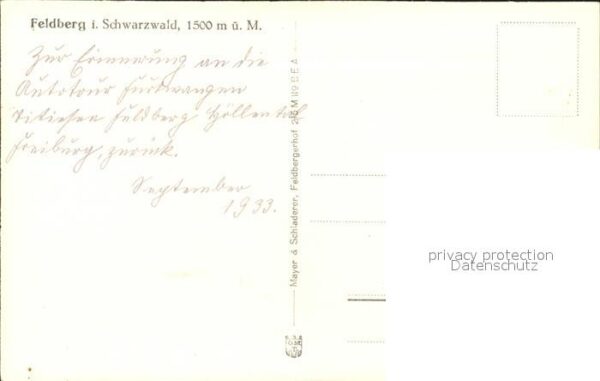 Feldberg i. Schwarzwald, 1500 m ü. M.
Zur Erinnerung an die
Autotour Furtwangen
Titisee Feldberg Höllental
Freiburg, zurück.
September
1933.
Mayer & Schladerer, Feldbergerhof
privacy protection
Datenschutz